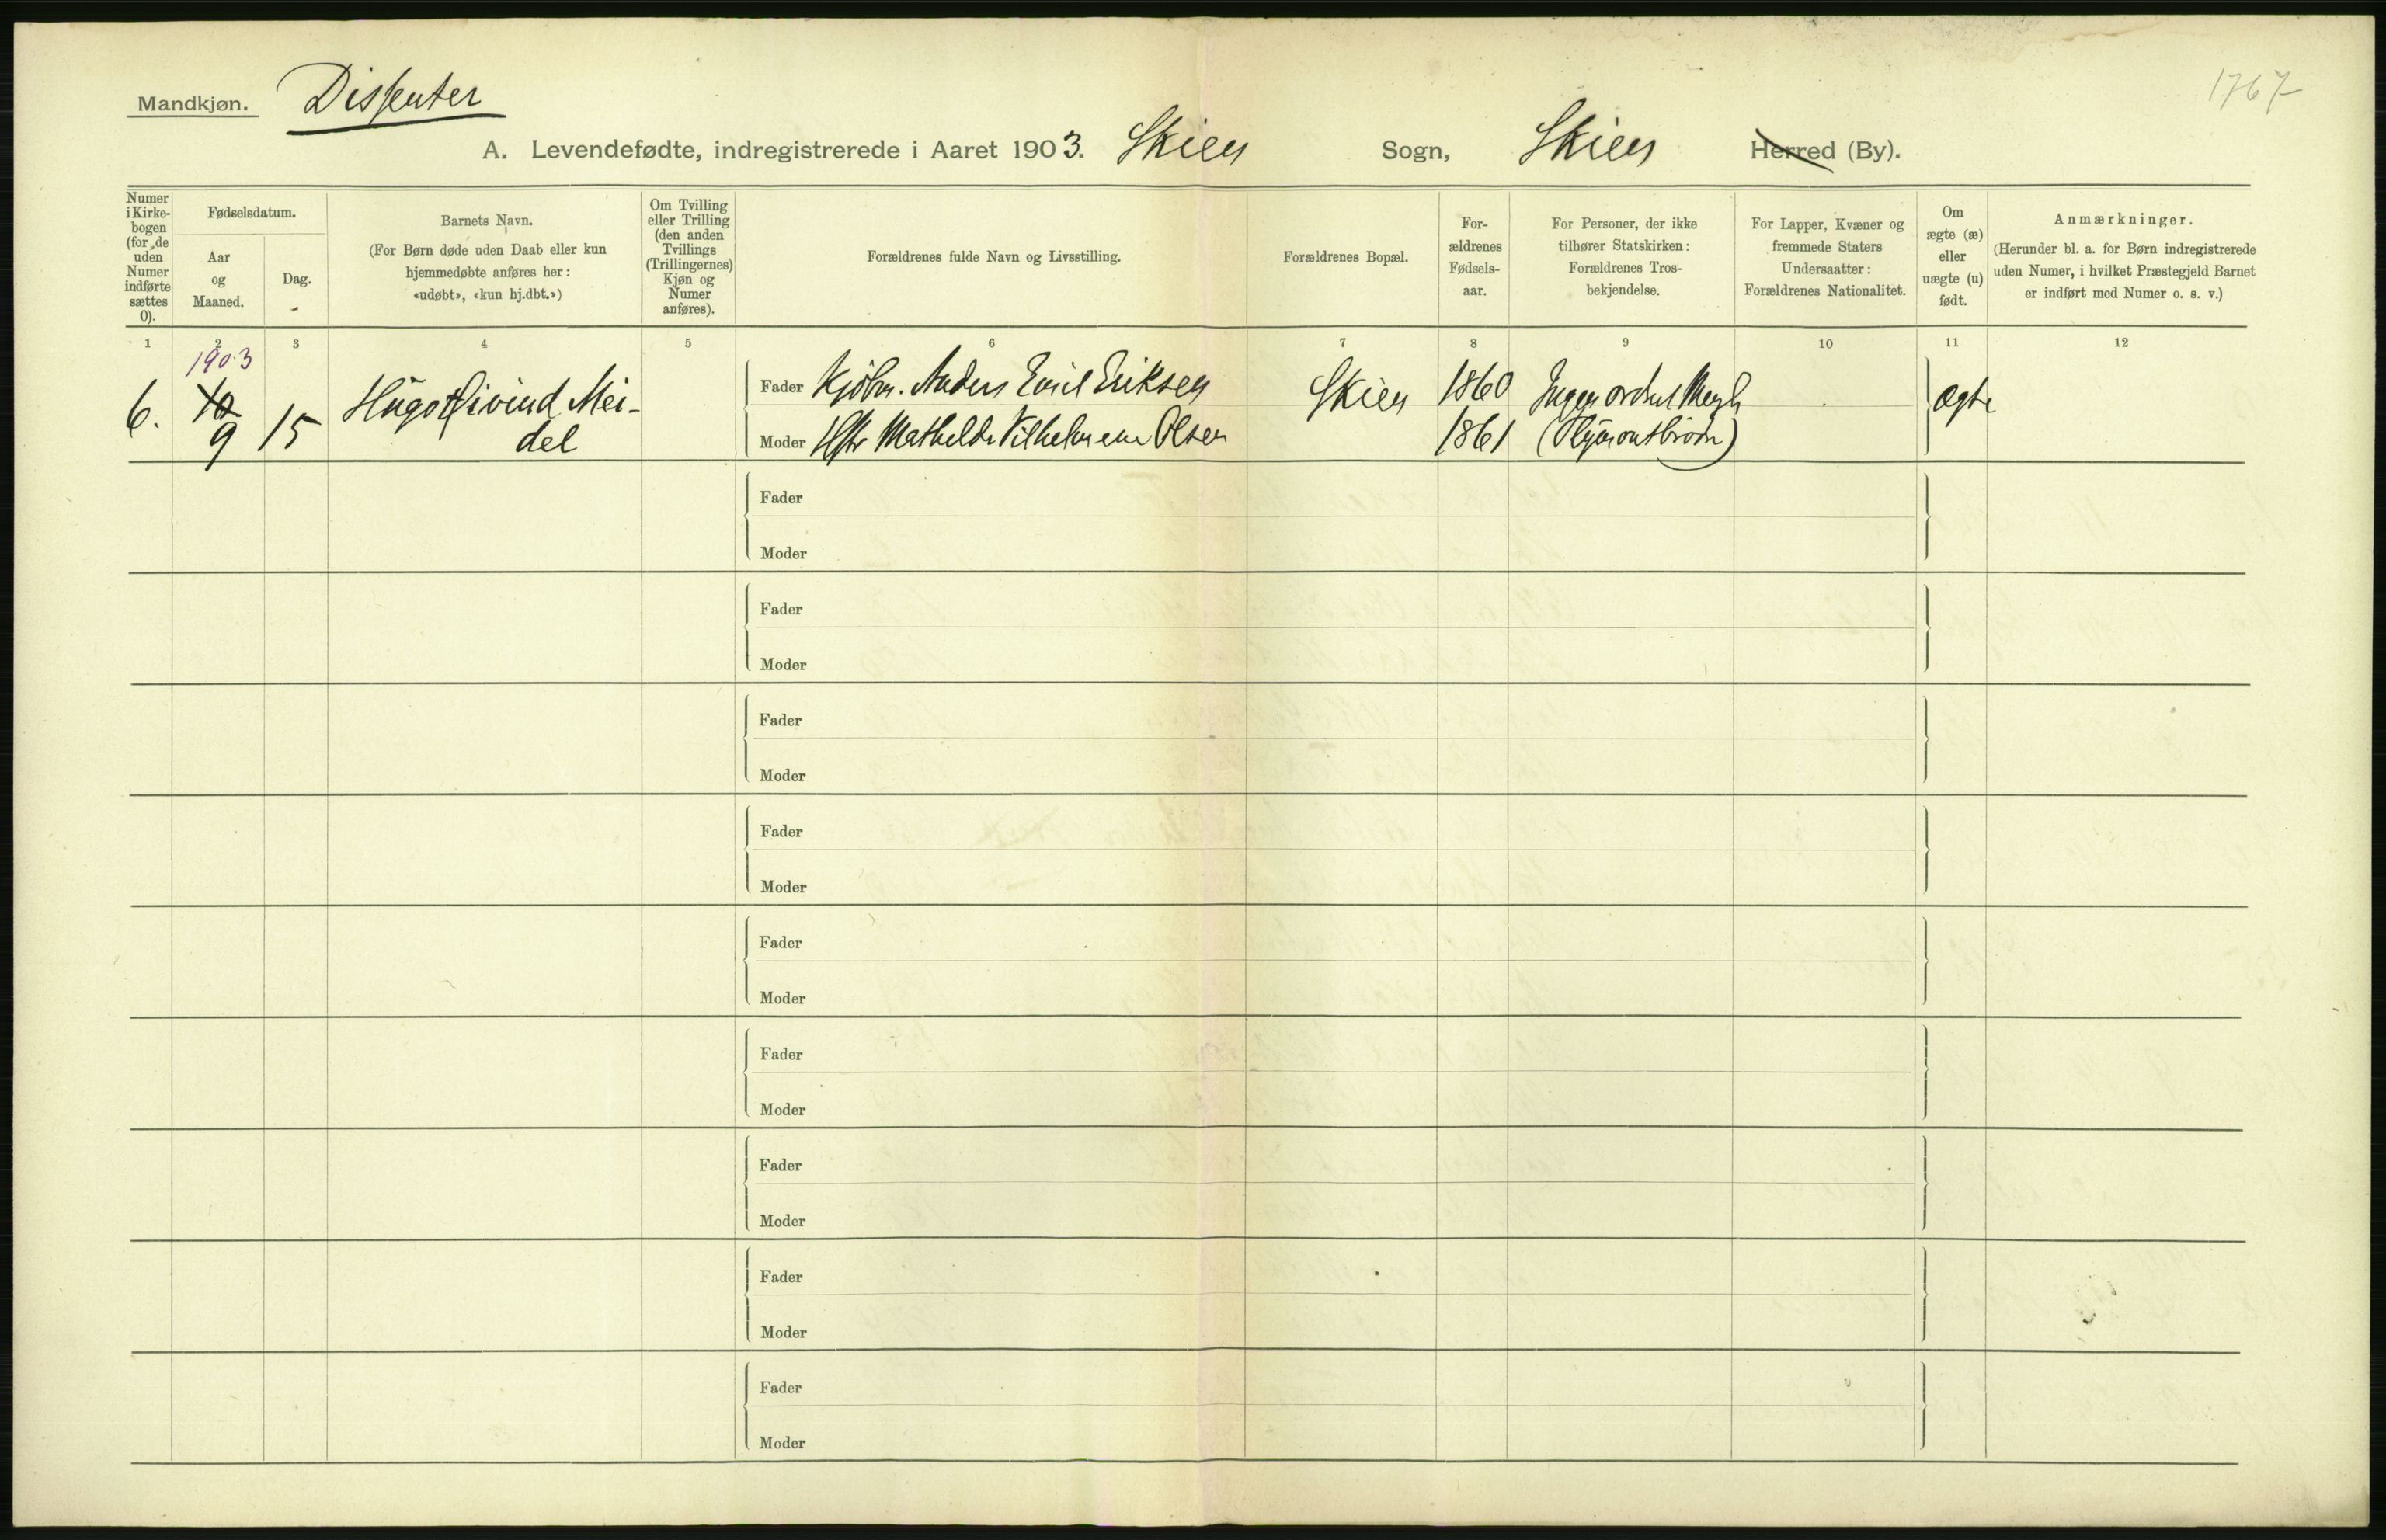 Mandkjøn. Dissenter
1767
A. Levendefødte, indregistrerede i Aaret 1903. Skien Sogn, Skien Herred (By).
Numer i Kirke-bogen (for de uden Numer indførte sættes 0).
Fødselsdatum.
Aar og Maaned.
Dag.
Barnets Navn.
(For Børn døde uden Daab eller kun
hjemmedøbte anføres her:
«udøbt», «kun hj.dbt.»)
Om Tvilling
eller Trilling
(den anden
Tvillings
(Trillingernes)
Kjøn og
Numer
anføres).
Forældrenes fulde Navn og Livsstilling.
Forældrenes Bopæl.
For-
ældrenes
Fødsels-
aar.
For Personer, der ikke
tilhører Statskirken:
Forældrenes Tros-
bekjendelse.
For Lapper, Kvæner og
fremmede Staters
Undersaatter:
Forældrenes Nationalitet.
Om
ægte (æ)
eller
uægte (u)
født.
Anmærkninger.
(Herunder bl. a. for Børn indregistrerede
uden Numer, i hvilket Præstegjeld Barnet
er indført med Numer o. s. v.)
1 2 3 4 5 6 7 8 9 10 11 12
1903
6. 9 15 Hugo Øivind Mei-
del
Fader Kjøbm. Anders Emil Eriksen Skien 1860 Ingen ordnet Mengh ægte
Moder Hstr Mathilde Vilhelmine Olsen 1861 (Plymouthbrødr)
Fader
Moder
Fader
Moder
Fader
Moder
Fader
Moder
Fader
Moder
Fader
Moder
Fader
Moder
Fader
Moder
Fader
Moder